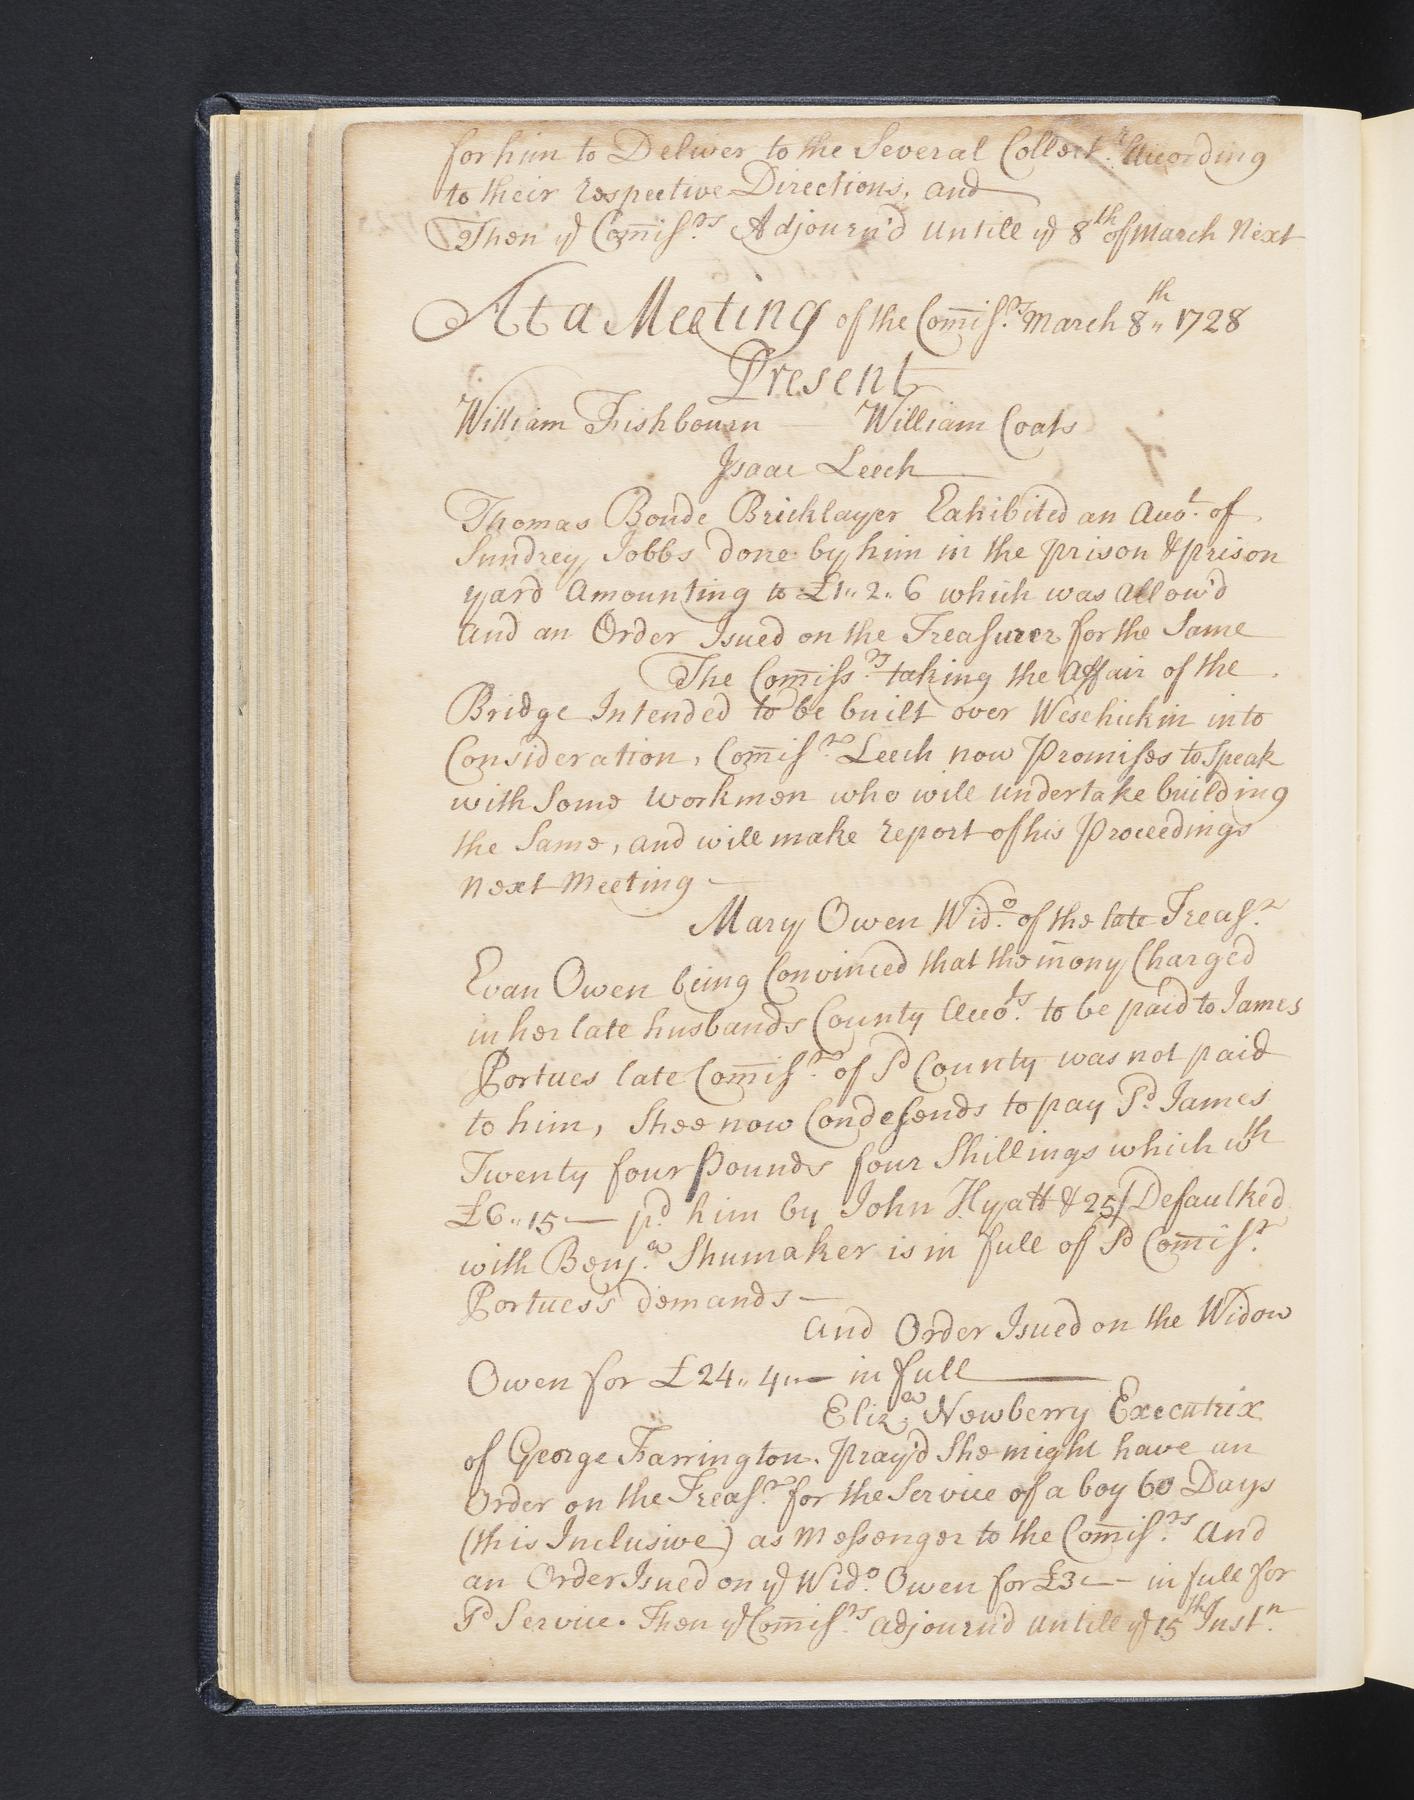 for him to Deliver to the Several Collect.rs According
to their respective Directions, and
Then ye Com̄iss.rs Adjourn'd untill ye 8th of March Next
At a Meeting of the Com̄iss.rs March 8th 1728
Present
William Fishbourn — William Coats
Isaac Leech
Thomas Boude Bricklayer Exhibited an Acco.t of
Sundrey Jobbs done by him in the prison & prison
yard Amounting to £1,, 2,, 6 which was Allow'd
And an Order Isued on the Treasurer for the Same
The Com̄iss.rs taking the Affair of the
Bridge Intended to be built over Wesehickin into
Consideration, Com̄iss.r Leech now Promises to Speak
with Some workmen who will undertake building
the Same, and will make report of his Proceedings
Next Meeting —
Mary Owen Wid.o of the late Treas.r
Evan Owen being Convinced that the m̄ony Charged
in her late husbands County Acco.ts to be paid to James
Portues late Com̄iss.r of Sd County was not paid
to him, Shee now Condesends to pay Sd James
Twenty four Pounds four Shillings which wth
£6,, 15 — pd him by John Hyatt & 25/ Defaulked
with Benj.a Shumaker is in full of Sd Com̄iss.r
Portues's demands —
And Order Isued on the Widow
Owen for £24,, 4,, — in full
Eliz.a Newberry Executrix
of George Farrington. Pray'd She might have an
Order on the Treas.r for the Service of a boy 60 Days
(this Inclusive) as Messenger to the Com̄iss.rs And
an Order Isued on ye Wid.o Owen for £3 — — in full for
Sd Service. Then ye Com̄iss.rs Adjourn'd untill ye 15th Inst.n